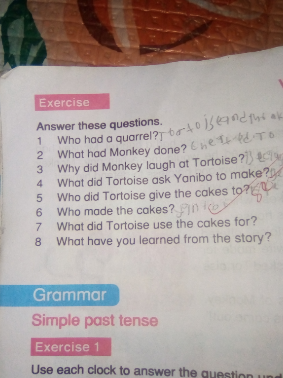 Exercise
Answer these questions.
1 Who had a quarrel?
2 What had Monkey done?
3 Why did Monkey laugh at Tortoise?
4 What did Tortoise ask Yanibo to make?
5 Who did Tortoise give the cakes to?
6 Who made the cakes?
7 What did Tortoise use the cakes for?
8 What have you learned from the story?
Grammar
Simple past tense
Exercise 1
Use each clock to answer the question